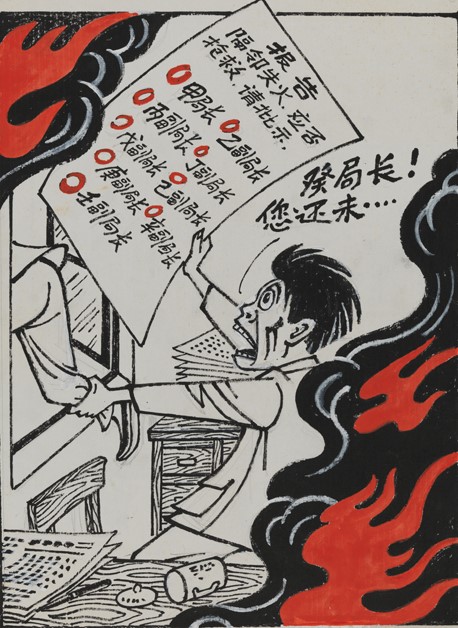 报告
隔邻失火,应否
抢救,请批示.
甲局长 乙副局长
丙副局长 丁副局长
戊副局长 己副局长
庚副局长 辛副局长
壬副局长
癸局长!
您还未....